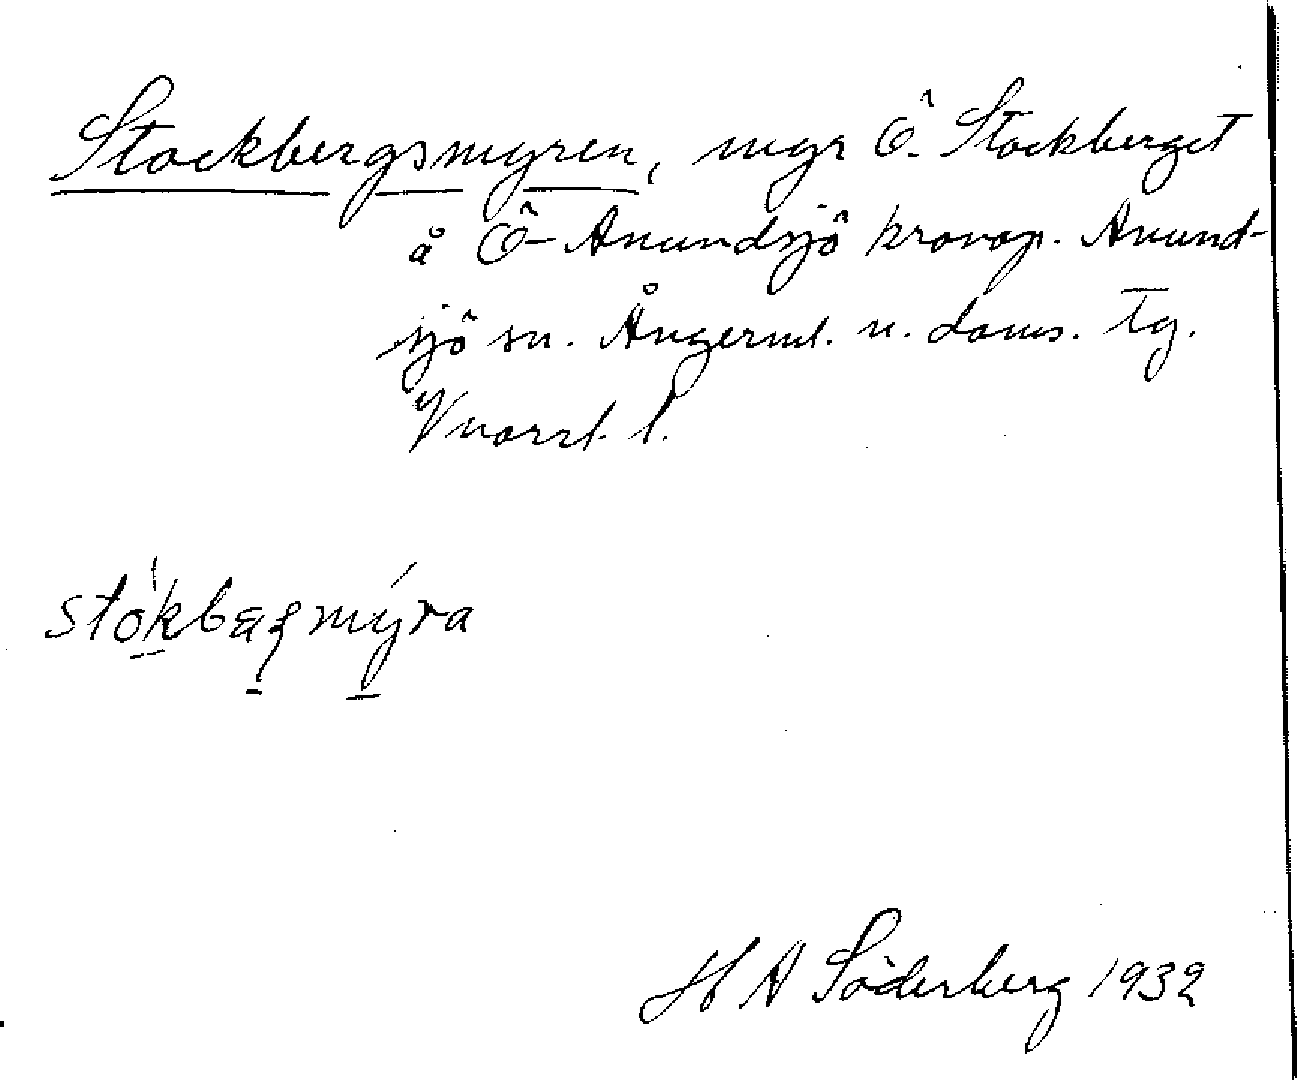 Stockbergsmyren, myr Ö. Stockberget
å Ö-Anundsjö kronop. Anund-
sjö sn. Ångerml. n. doms. Tg.
Vnorrl. l.
stókbæʂmýra
H A Söderberg 1932